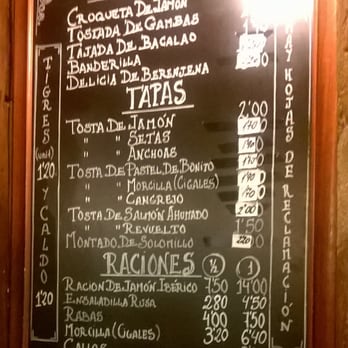 CROQUETA DE JAMÓN
TOSTADA DE GAMBAS
TAJADA DE BACALAO
BANDERILLA
DELICIA DE BERENJENA
TAPAS
TOSTA DE JAMÓN 2'00
" " SETAS 170
" " ANCHOAS 190
TOSTA DE PASTEL DE BONITO 170
" " MORCILLA (CIGALES) 190
" " CANGREJO 170
TOSTA DE SALMÓN AHUMADO 200
" " REVUELTO 1'50
MONTADO DE SOLOMILLO 220
RACIONES ½ 1
RACION DE JAMÓN IBÉRICO 7'50 14'00
ENSALADILLA RUSA 2'80 4'50
RABAS 4'00 7'50
MORCILLA (CIGALES) 3'20 6'40
CALLOS
TIGRES (UNID) 1'20 Y CALDO 1'20
HAY HOJAS DE RECLAMACIÓN